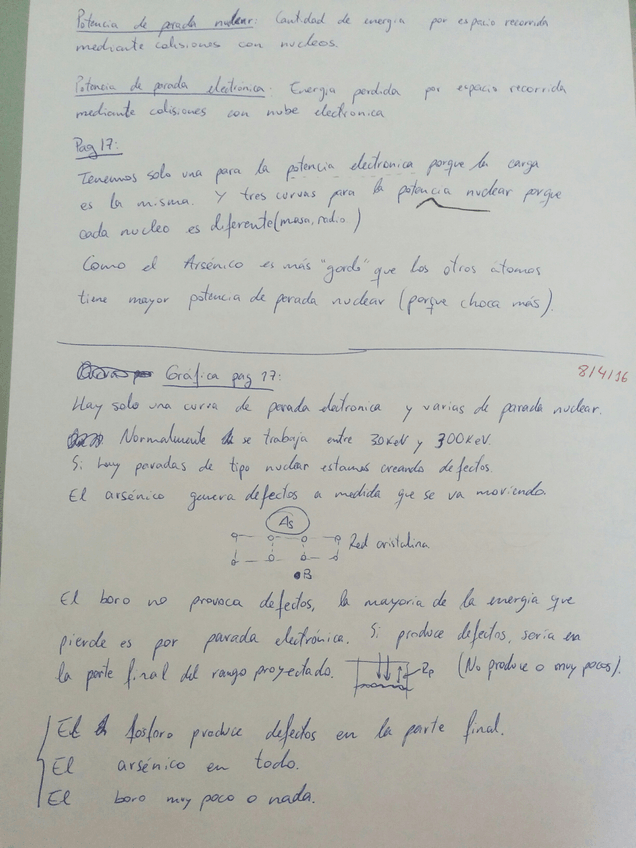 Potencia de parada nuclear: Cantidad de energia por espacio recorrida
mediante colisiones con nucleos.
Potencia de parada electrónica. Energia perdida por espacio recorrida
mediante colisiones con nube electronica
Pag 17:
Tenemos solo una para la potencia electronica porque la carga
es la misma. Y tres curvas para la potencia nuclear porque
cada nucleo es diferente (masa, radio.)
Como el Arsénico es más "gordo" que los otros átomos
tiene mayor potencia de parada nuclear (porque choca más).
8/4/16
Gráfica pag 17:
Hay solo una curva de parada electronica y varias de parada nuclear.
Normalmente se trabaja entre 30KeV y 300KeV.
Si hay paradas de tipo nuclear estamos creando defectos.
El arsénico genera defectos a medida que se va moviendo.
As
Red cristalina
B
El boro no provoca defectos, la mayoria de la energia que
pierde es por parada electrónica. Si produce defectos, seria en
la parte final del rango proyectado. Rp (No produce o muy pocos).
El fosforo produce defectos en la parte final.
El arsénico en todo.
El boro muy poco o nada.